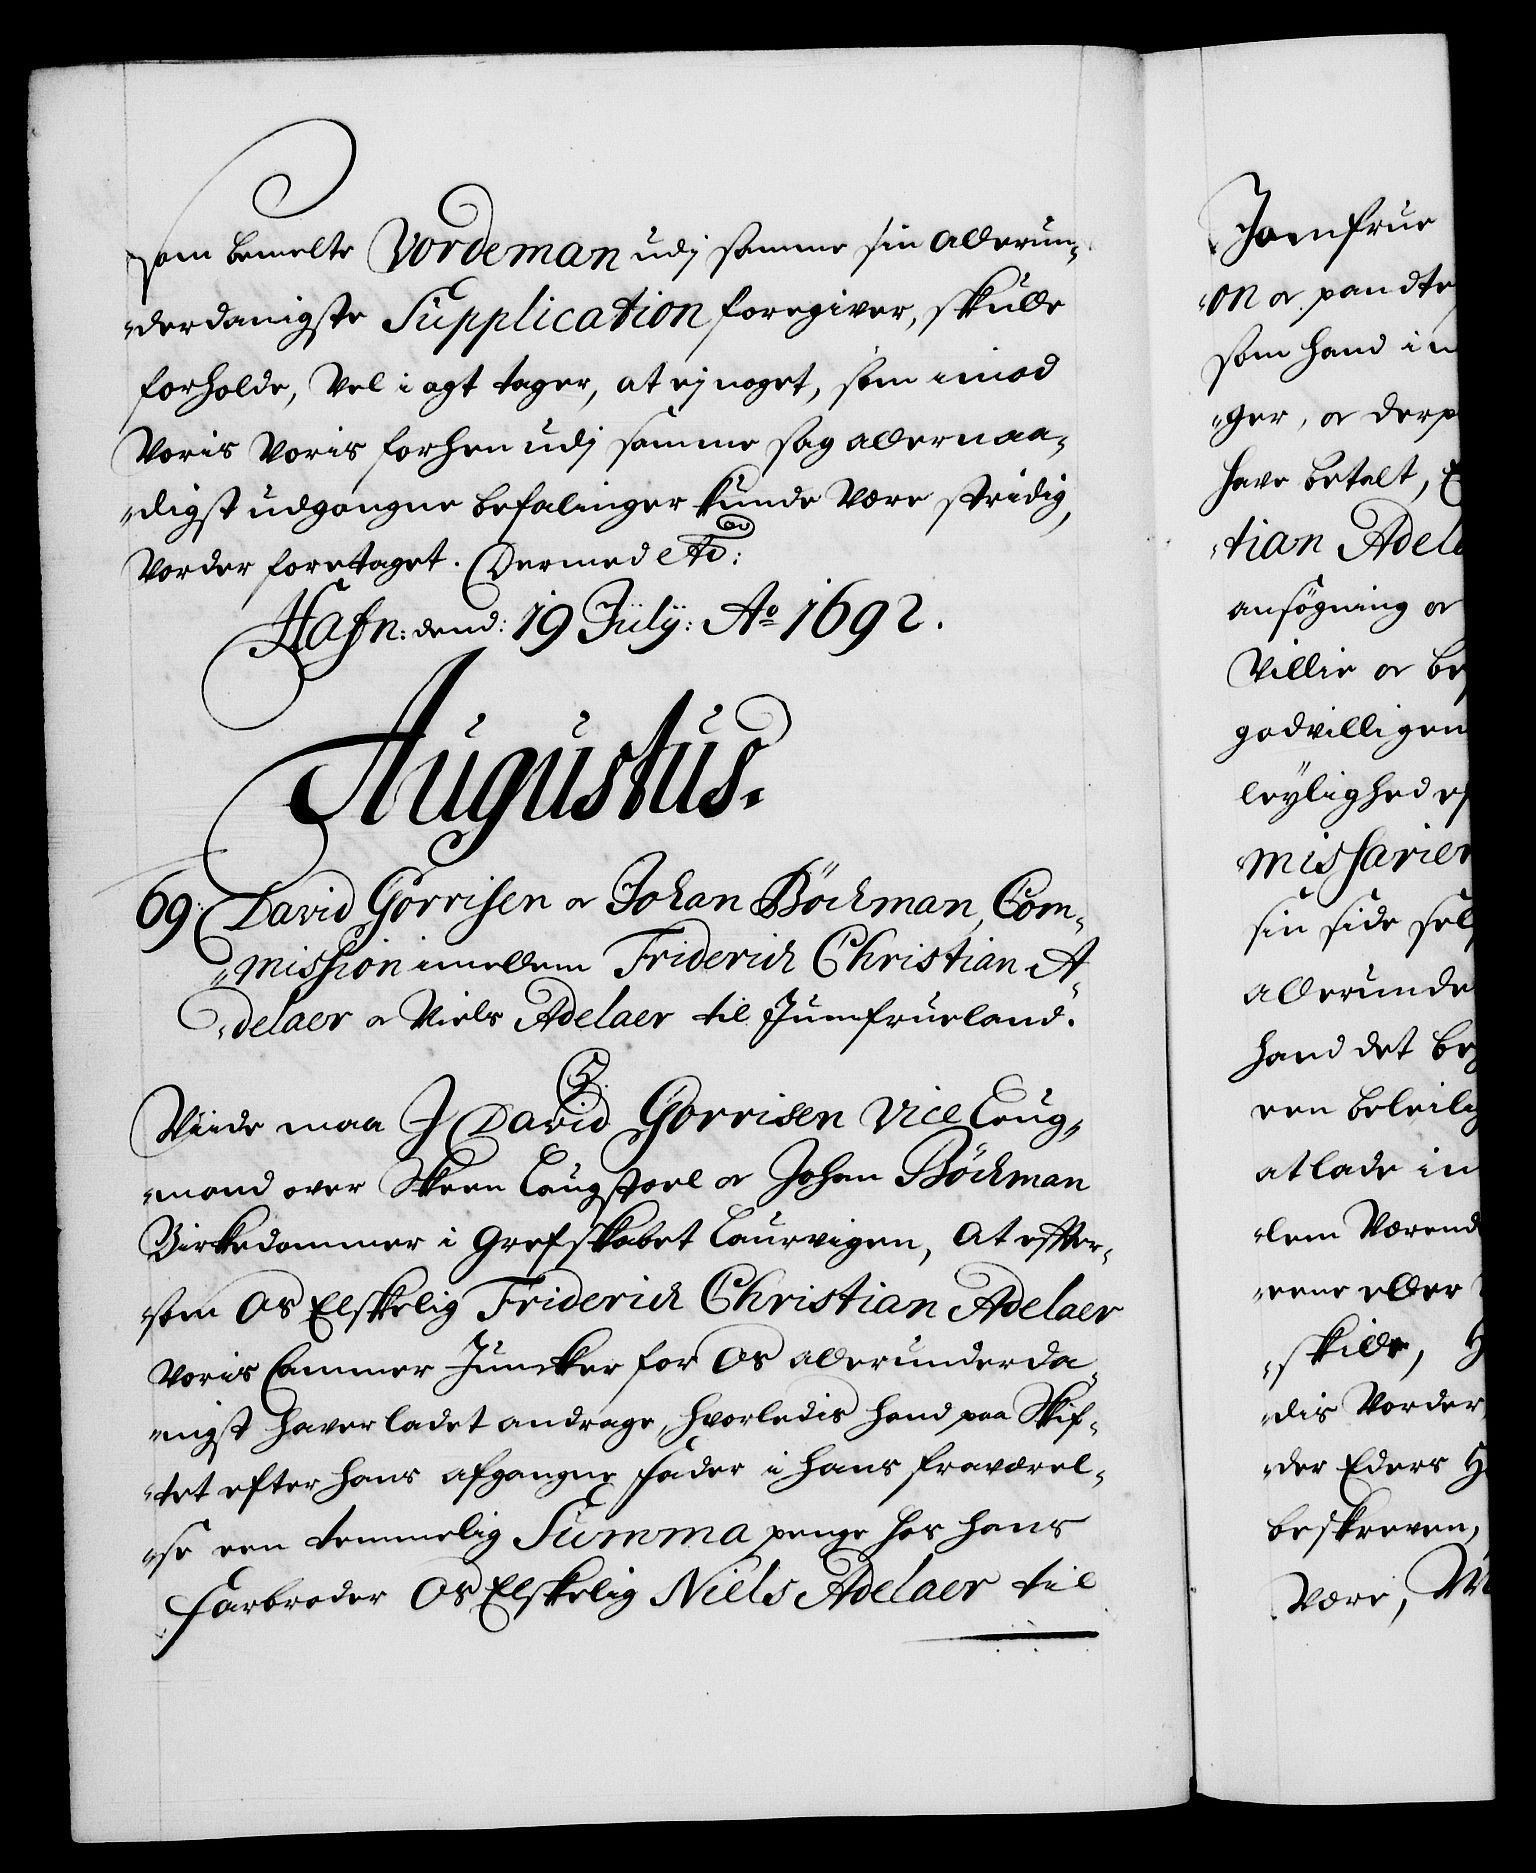 som bemelte Vordeman udj samme sin allerun„
„derdanigste Supplication foregiver, skulle
forholde, Vel i agt tager, at ej noget, som imod
Voris Voris forhen udj samme sag allernaa„
„digst udgangne befalinger kunde Være stridig,
Vorder foretaget. Dermed etc:
Hafn: dend: 19 Julÿ: Ao 1692.
Augustus.
69: David Görrissen or Johan Böckman, Com„
„mission imellem Friderich Christian A„
„delaer or Niels Adelaer til Jumfrueland.
C5.
Viide maa J David Gorrisen Vice Laug„
„mand over Skeen Laugstoel or Johan Böckman
Birkedommer i Grefskabet Laurvigen, At effter„
„som Os Elskelig Friderich Christian Adelaer
Voris Cammer Juncker for Os allerunderda„
„nigst haver ladet andrage, hvorledis hand paa Skif„
„tet efter hans afgangne fader i hans fraværel„
„se een temmelig Summa penge hos hans
farbroder Os Elskelig Niels Adelaer til
Jomfrue
„on or pandte
som hand in
„ger, or derp
have betalt,
„tian Adel
ansögning or
Villie or be
godvilligen
leÿlighed
missarier
sin side sel
allerunde
hand det be
een beleili
at lade in
„lem Værend
„eene eller
„skille, H
„dis Vorder,
„der Eders H
beskreven,
Være,